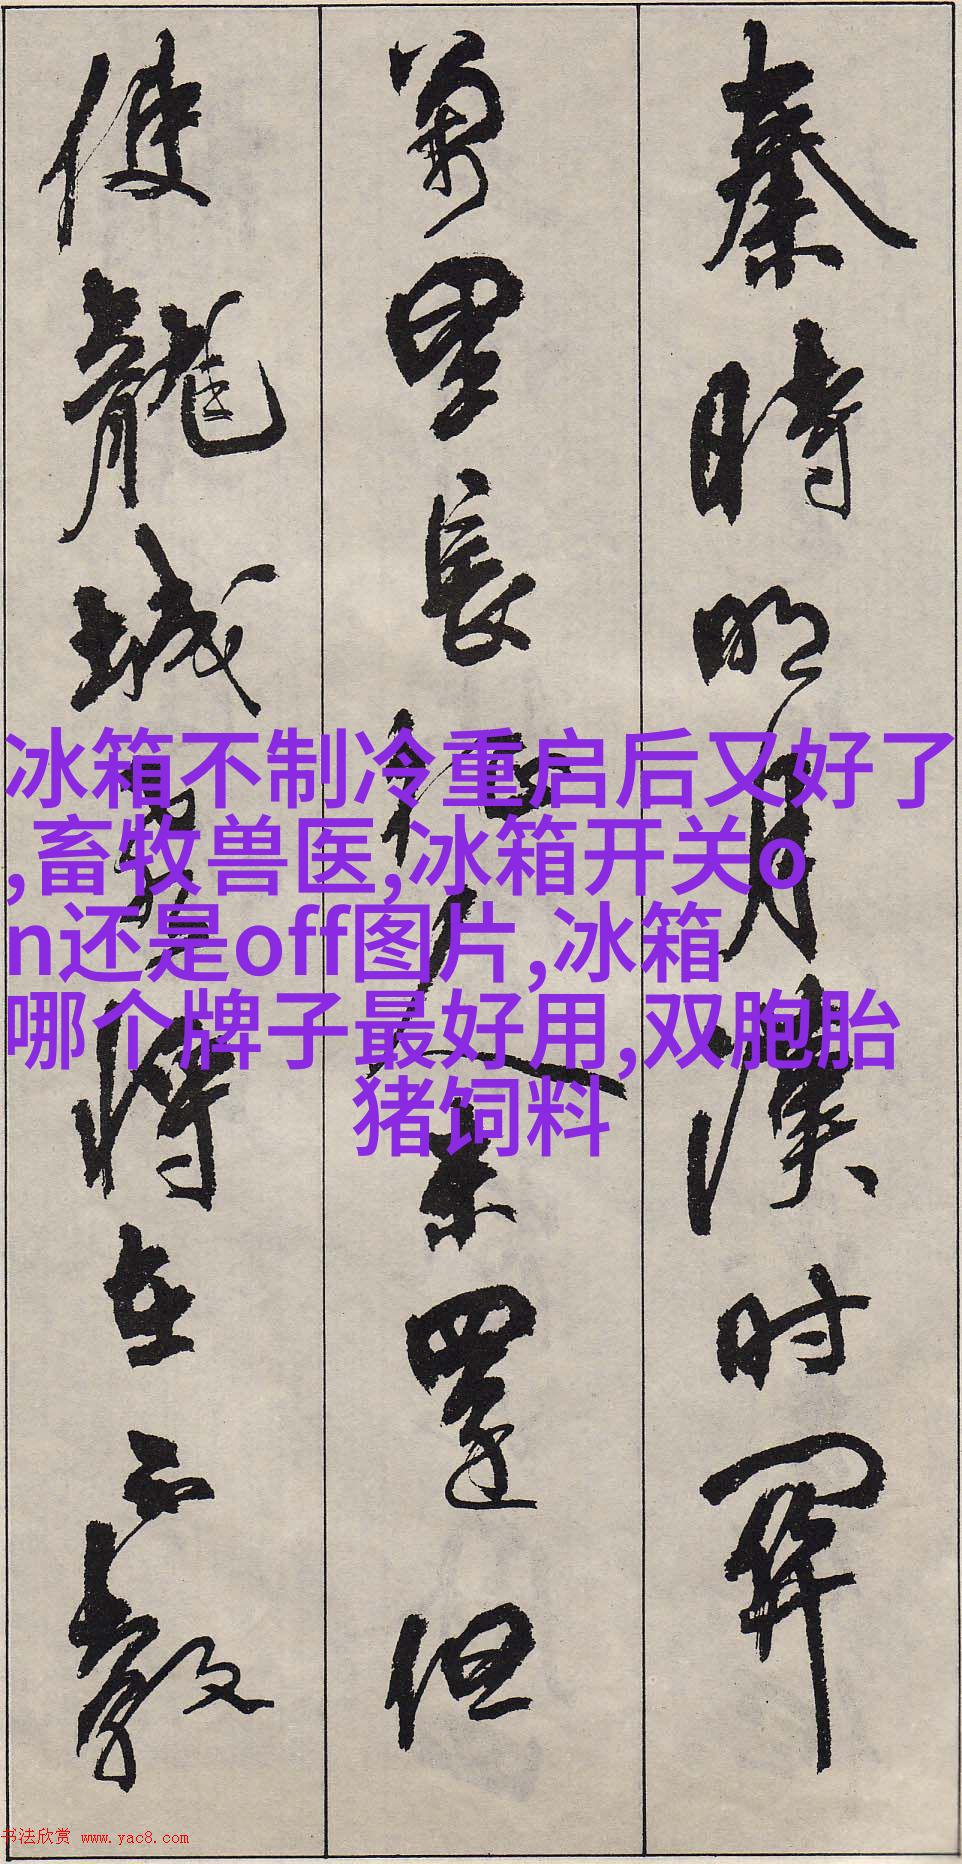 秦時明月漢时關
萬里長征人未還但
使龍城飛將在不教
冰箱不制冷重启后又好了
,畜牧兽医,冰箱开关o
n还是off图片,冰箱
哪个牌子最好用,双胞胎
猪饲料
书法欣赏 www.yac8.com